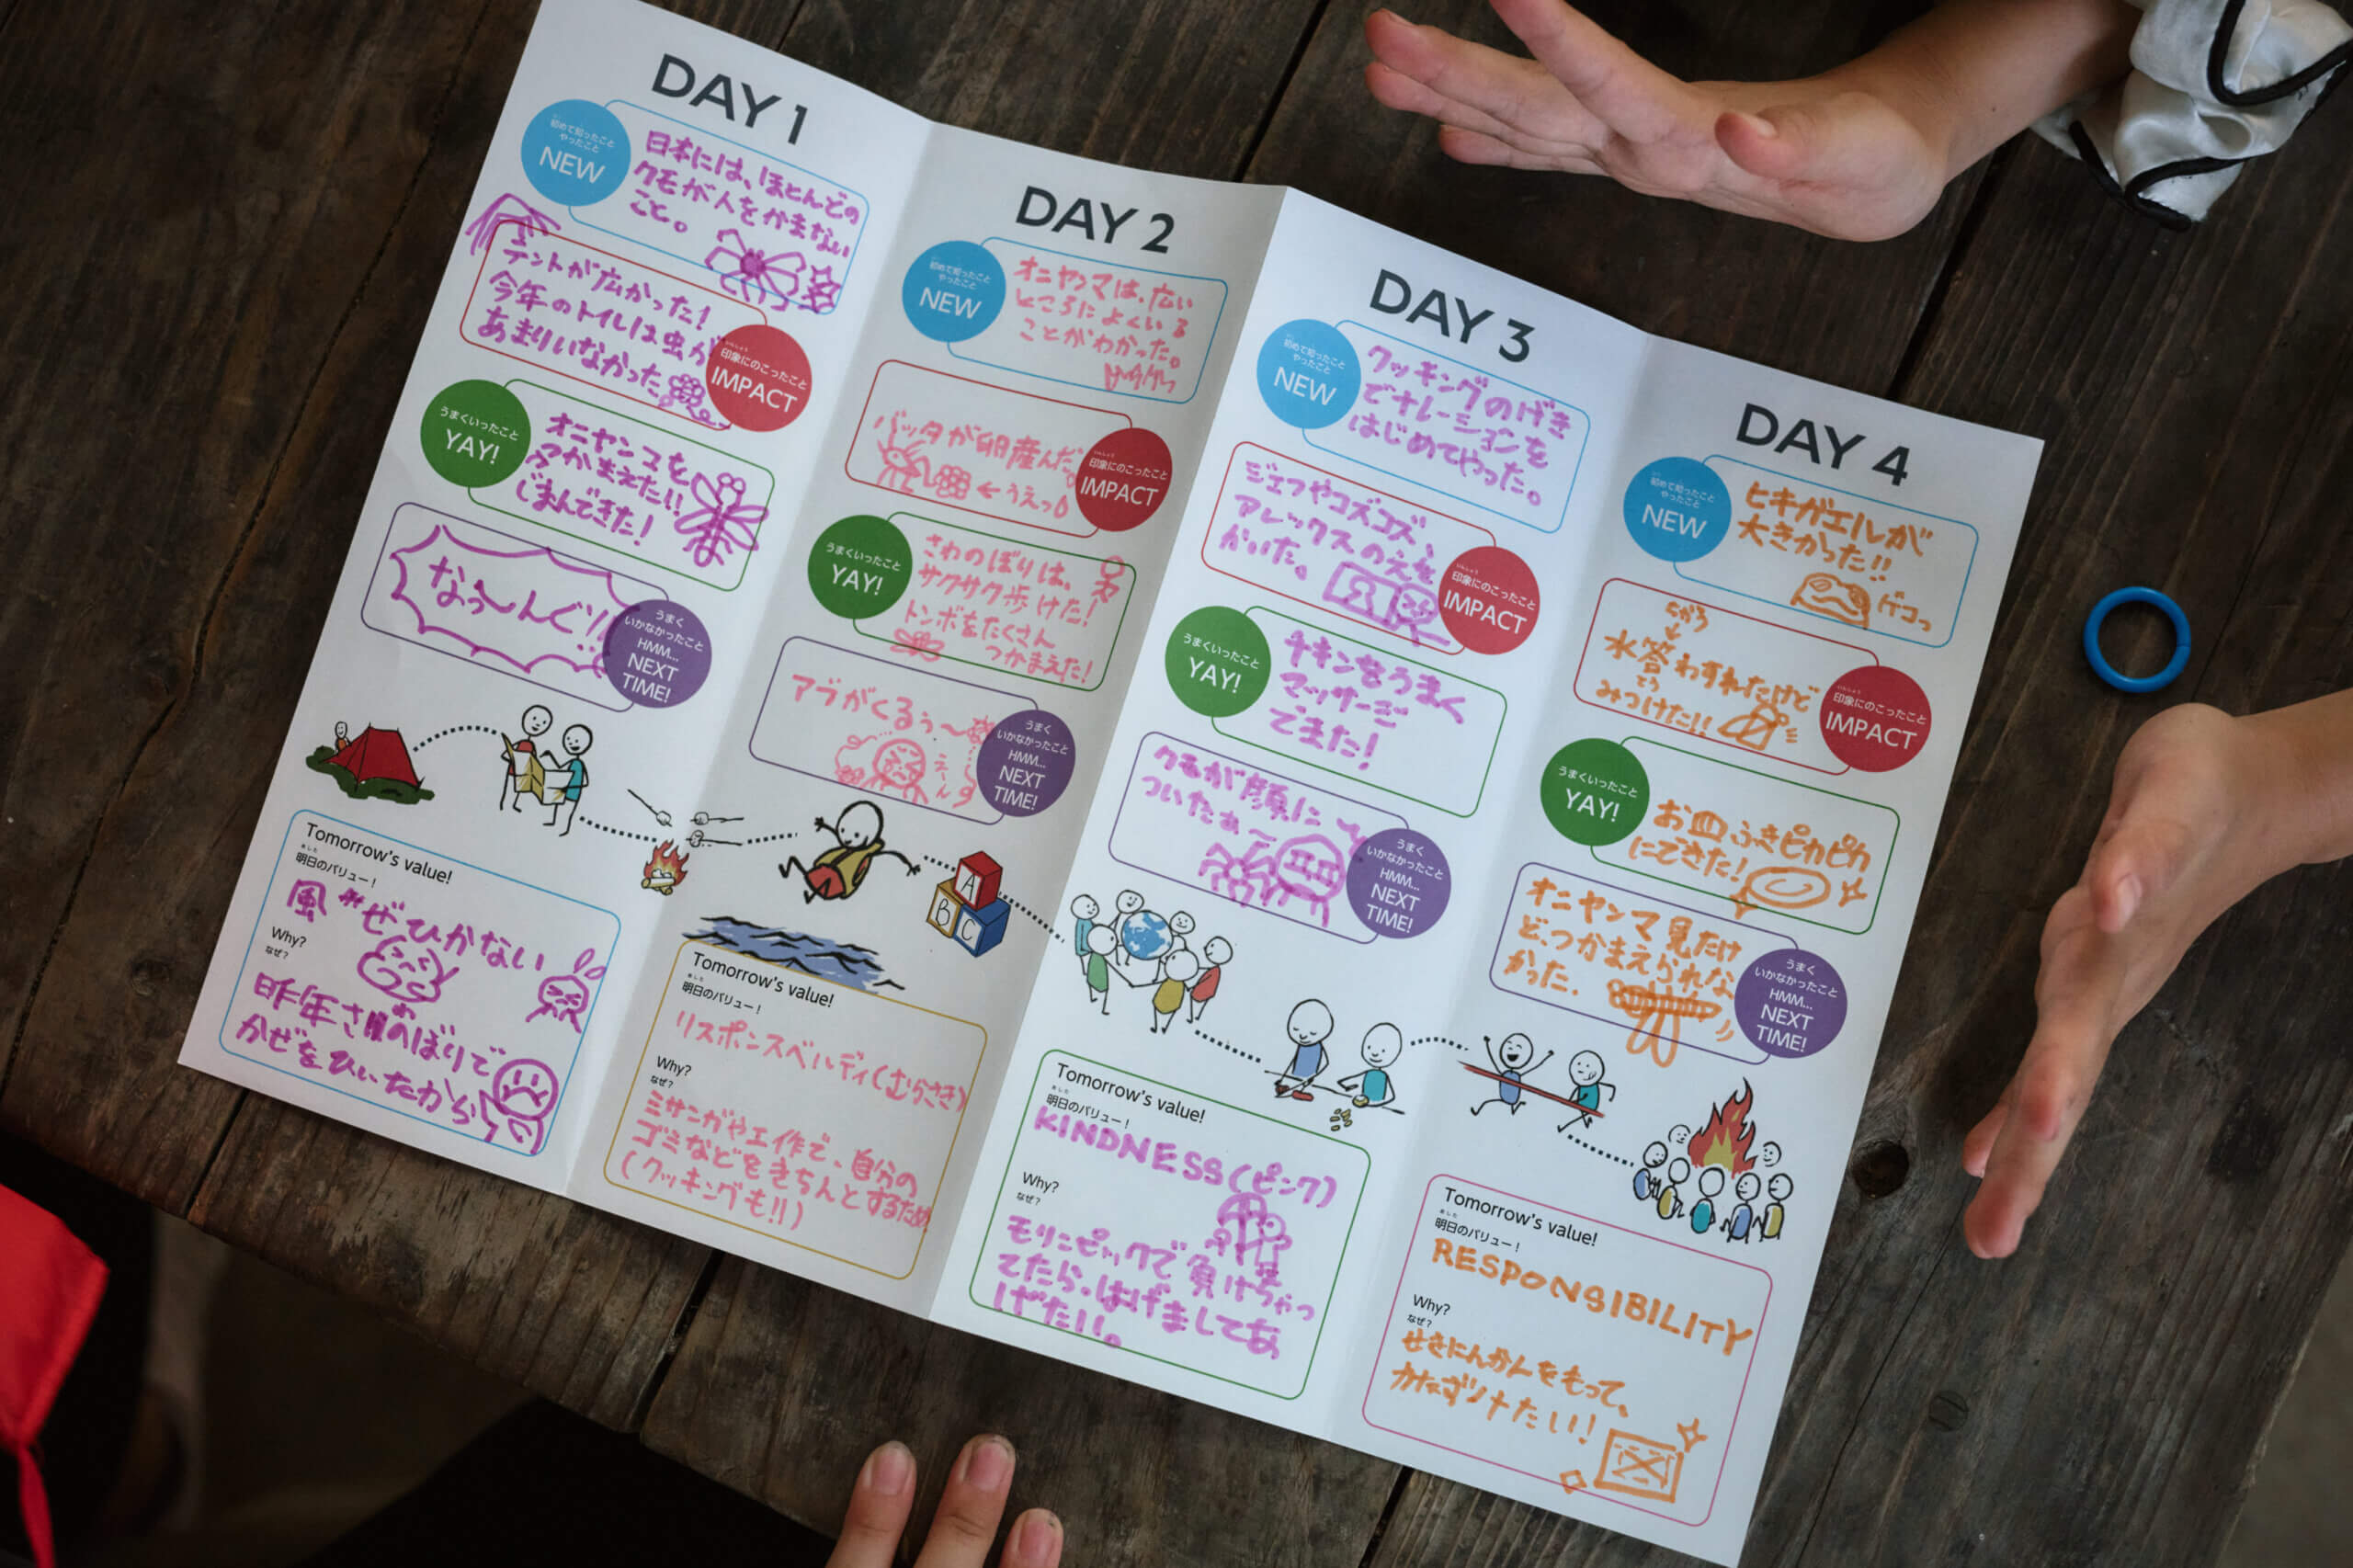 DAY 1
初めて知ったこと
やったこと
NEW
日本には、ほとんどの
クモが人をかまない
こと。
テントが広かった！
今年のトイレは虫が
あまりいなかった
いんしょう
印象にのこったこと
IMPACT
うまくいったこと
YAY!
オニヤンマを
つかまえた!!
じまんできた！
なぅ〜んぐ!!
うまく
いかなかったこと
HMM...
NEXT
TIME!
Tomorrow's value!
あした
明日のバリュー！
風"ぜひかない
Why?
なぜ？
昨年さわのぼりで
かぜをひいたから
DAY 2
初めて知ったこと
やったこと
NEW
オニヤンマは、広い
ところによくいる
ことがわかった。
バッタが卵産んだ
←うえっ
いんしょう
印象にのこったこと
IMPACT
うまくいったこと
YAY!
さわのぼりは、
サクサク歩けた！
トンボをたくさん
つかまえた！
アブがくるぅ〜
えーん
うまく
いかなかったこと
HMM...
NEXT
TIME!
A
B
C
Tomorrow's value!
あした
明日のバリュー！
リスポンスベルディ(むらさき)
Why?
なぜ？
ミサンガや工作で、自分の
ゴミなどをきちんとするため
(クッキングも!!)
DAY 3
初めて知ったこと
やったこと
NEW
クッキングのげき
でナレーションを
はじめてやった。
ジェフやコズコズ、
アレックスのえを
かいた。
いんしょう
印象にのこったこと
IMPACT
うまくいったこと
YAY!
チキンをうまく
マッサージ
できた！
クモが顔に
ついたぁ〜
うまく
いかなかったこと
HMM...
NEXT
TIME!
Tomorrow's value!
あした
明日のバリュー！
KINDNESS(ピンク)
Why?
なぜ？
モリンピックで負けちゃっ
てたら、はげましてあ
げたい!。
DAY 4
初めて知ったこと
やったこと
NEW
ヒキガエルが
大きかった!!
ゲコっ
水筒わすれたけど
みつけた!!
いんしょう
印象にのこったこと
IMPACT
うまくいったこと
YAY!
お皿ふきピカピカ
にできた！
オニヤンマ見たけ
ど、つかまえられな
かった.
うまく
いかなかったこと
HMM...
NEXT
TIME!
Tomorrow's value!
あした
明日のバリュー！
RESPONSIBILITY
Why?
なぜ？
せきにんかんをもって、
かたずけたい！